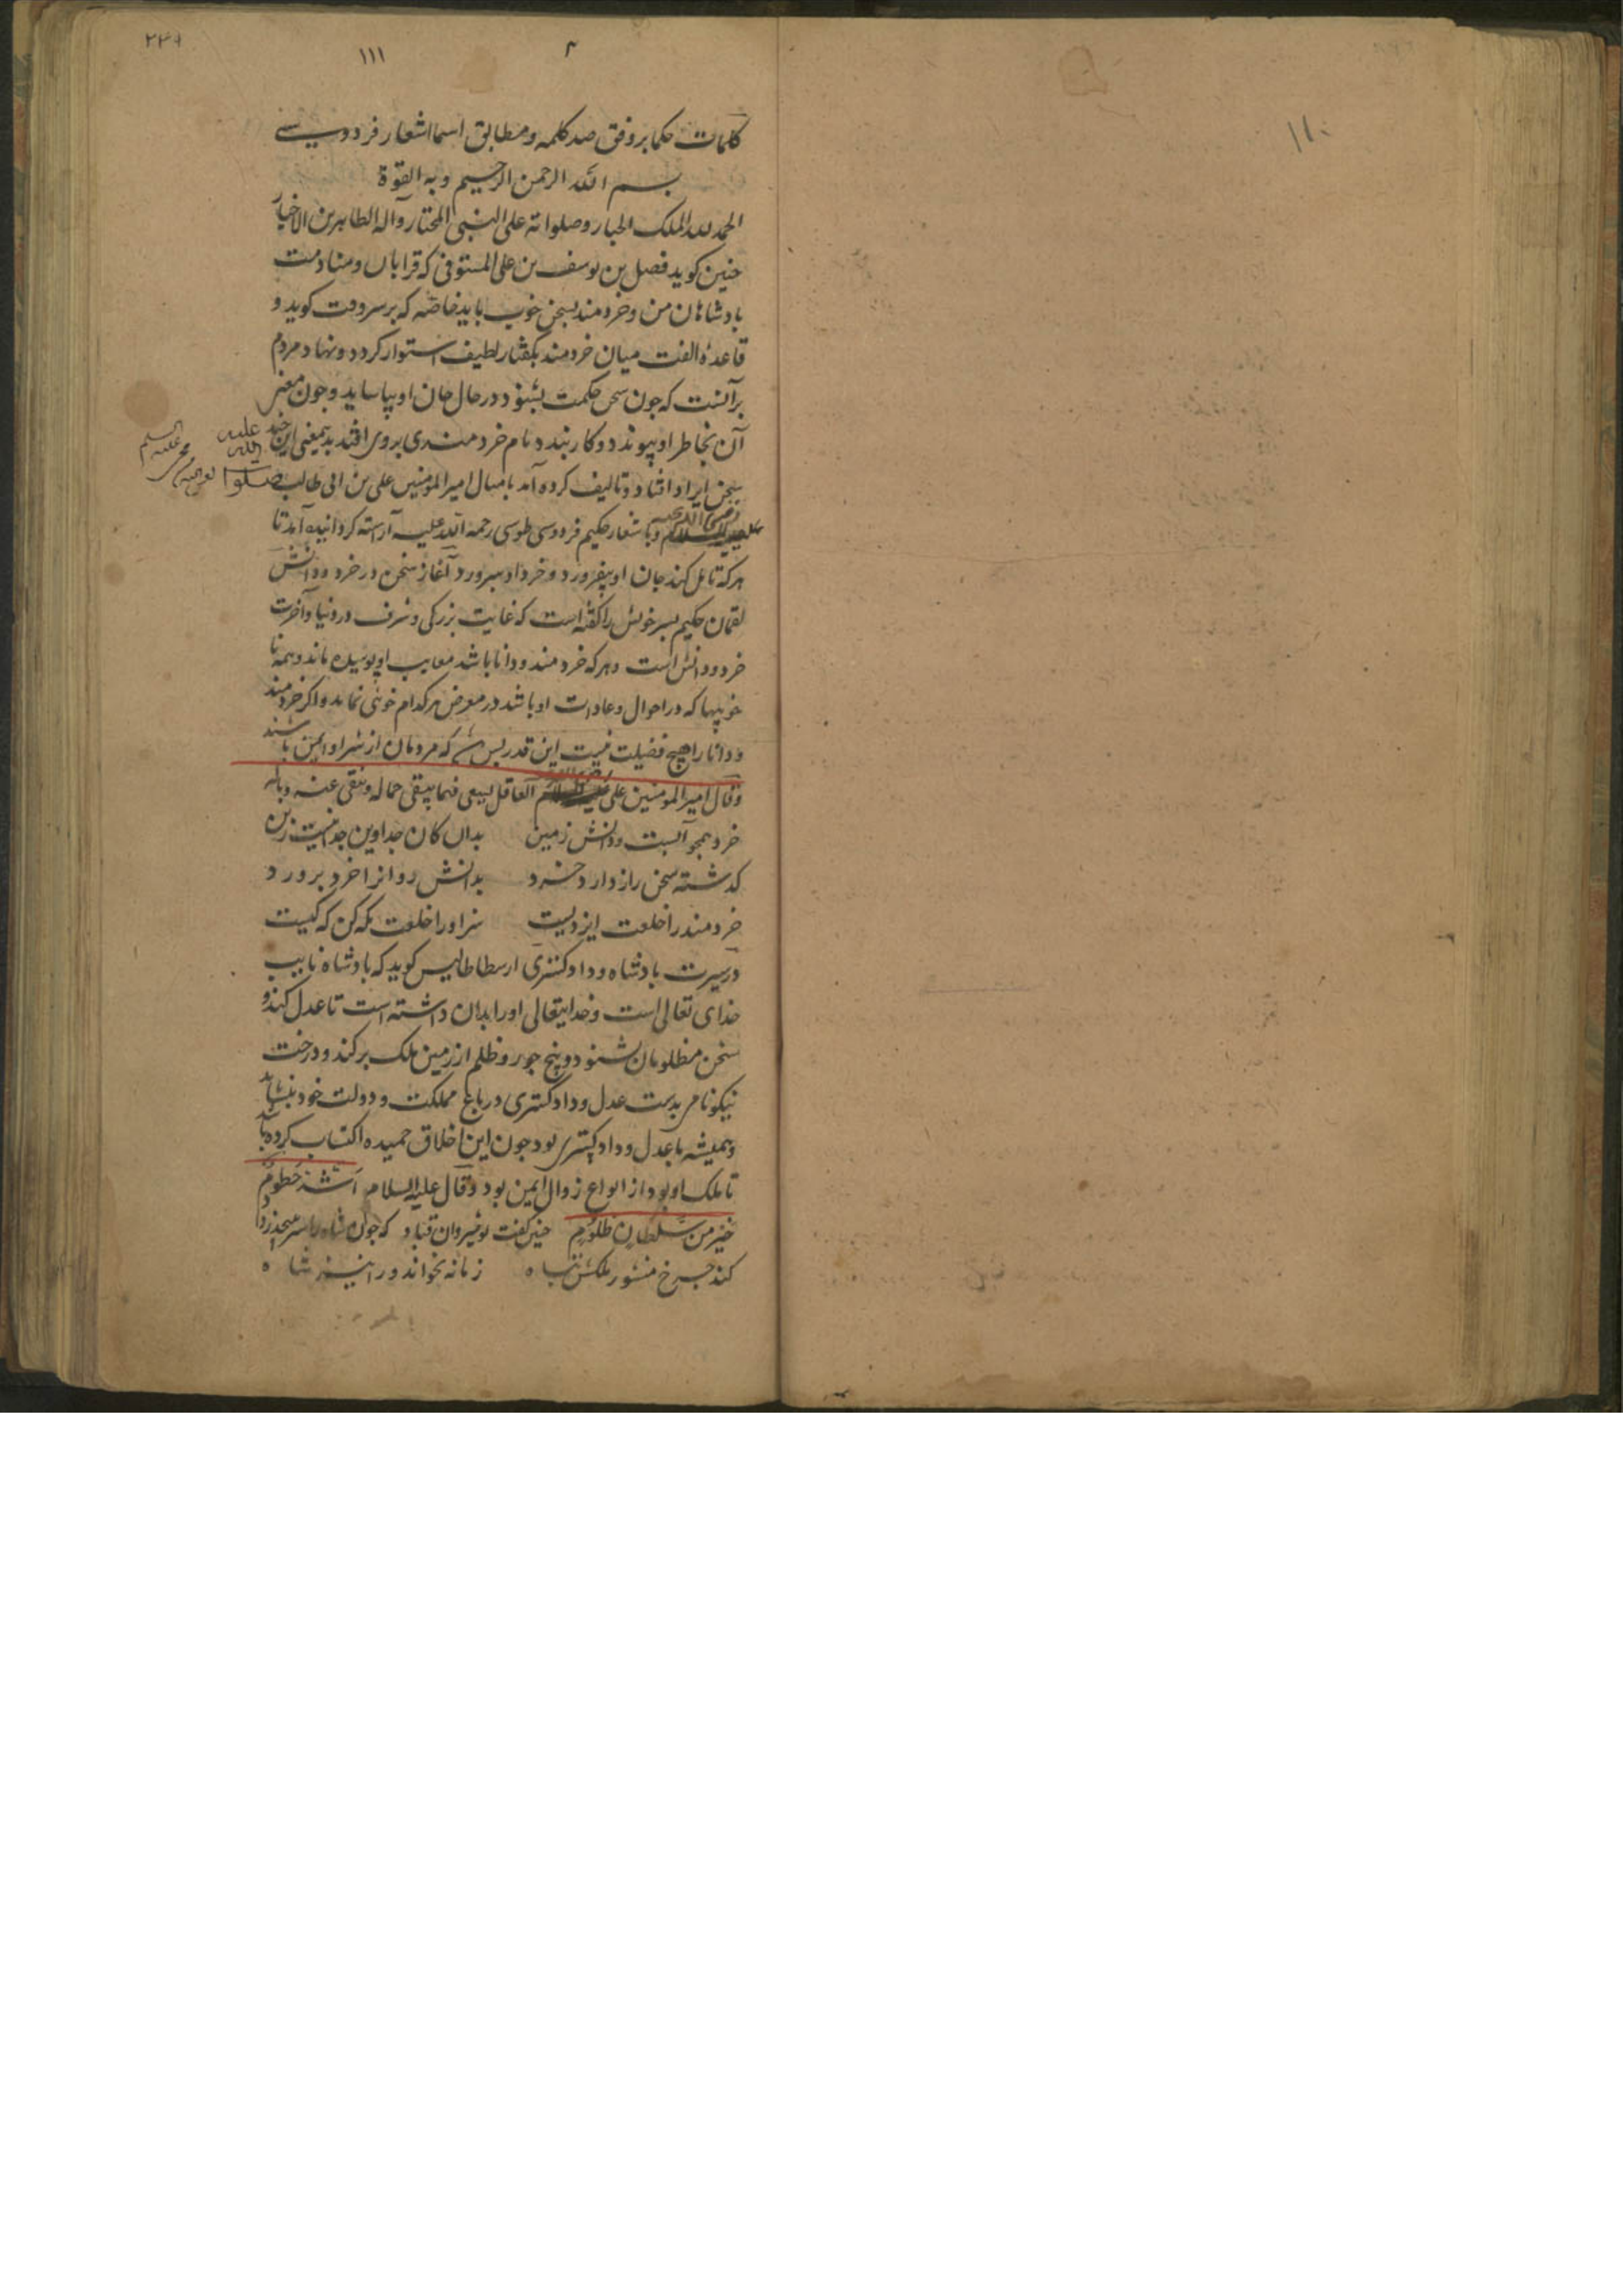 ۱۱۱
۱۱۰
کلمات حکما بر وفق صد کلمه و مطابق اسما اشعار فردوسی
بسم الله الرحمن الرحیم و به القوة
الحمد لله الملک الجبار و صلواته علی النبی المختار و آله الطاهرین الاخیار
جنین کوید فضل بن یوسف بن علی المستوفی که و منادمت
بادشاهان من و خردمند بسخن خوب باید خاصه که بر سر وقت کوید و
قاعدۀ الفت میان خردمند بکفتار لطیف استوار کردد و نهاد مردم
بر آنست که جون سخن حکمت بشنود در حال جان او بیاساید و جون معنی
آن بخاطر او پیوندد و کار بندد نام خردمندی بروی افتد بدین معنی این جند
سخن ایراد افتاد و تالیف کرده آمد بامثال امیر المومنین علی بن ابی طالب
صلوات الله علیه
رضی الله عنه و باشعار حکیم فردوسی طوسی رحمة الله علیه آراسته کردانیده آمد تا
هرکه تامل کند جان او بیفروزد و خرد او ببرورد آغاز سخن در خرد و دانش
لقمان حکیم بسر خویش را کفته است که غایت بزرکی و شرف در دنیا و آخرت
خرد و دانش است و هرکه خردمند و دانا باشد معایب او پوشیده ماند و همه نا
خوبیها که در احوال و عادات او باشد در معرض هرکدام خوبی نماید و اکر خردمند
و دانا را هیج فضیلت نیست این قدر بس که مردمان از شر او ایمن باشند
و قال امیر المومنین علی العاقل یسعی فیما یبقی جماله و ینفی عنه وباله
خرد همجو آبست و دانش زمین بدان کان جدا وین جدا نیست زین
کذشته سخن راز دارد خرد بدانش روانرا خرد برورد
خردمند را خلعت ایزدیست سزاور خلعت نکه کن که کیست
در سیرت بادشاه و دادکستری ارسطاطالیس کوید که بادشاه نایب
خدای تعالی است و خدایتعالی اورا بدان داشته است تا عدل کند و
سخن مظلومان شنود و بیخ جور و ظلم از زمین ملک برکند و درخت
نیکونامی بدست عدل و دادکستری در باغ مملکت و دولت خود بنشاند
و همیشه با عدل و دادکستری بود جون این اخلاق حمیده اکتساب کرده باشد
تا ملک او بود از انواع زوال ایمن بود و قال علیه السلام اسد حطوم
خیر من سلطان ظلوم جنین کفت نوشیروان قباد که جون شاه را سر ببیجد ز داد
کند جرخ منشور ملکش سیاه زمانه نخواند ورا نیز شاه